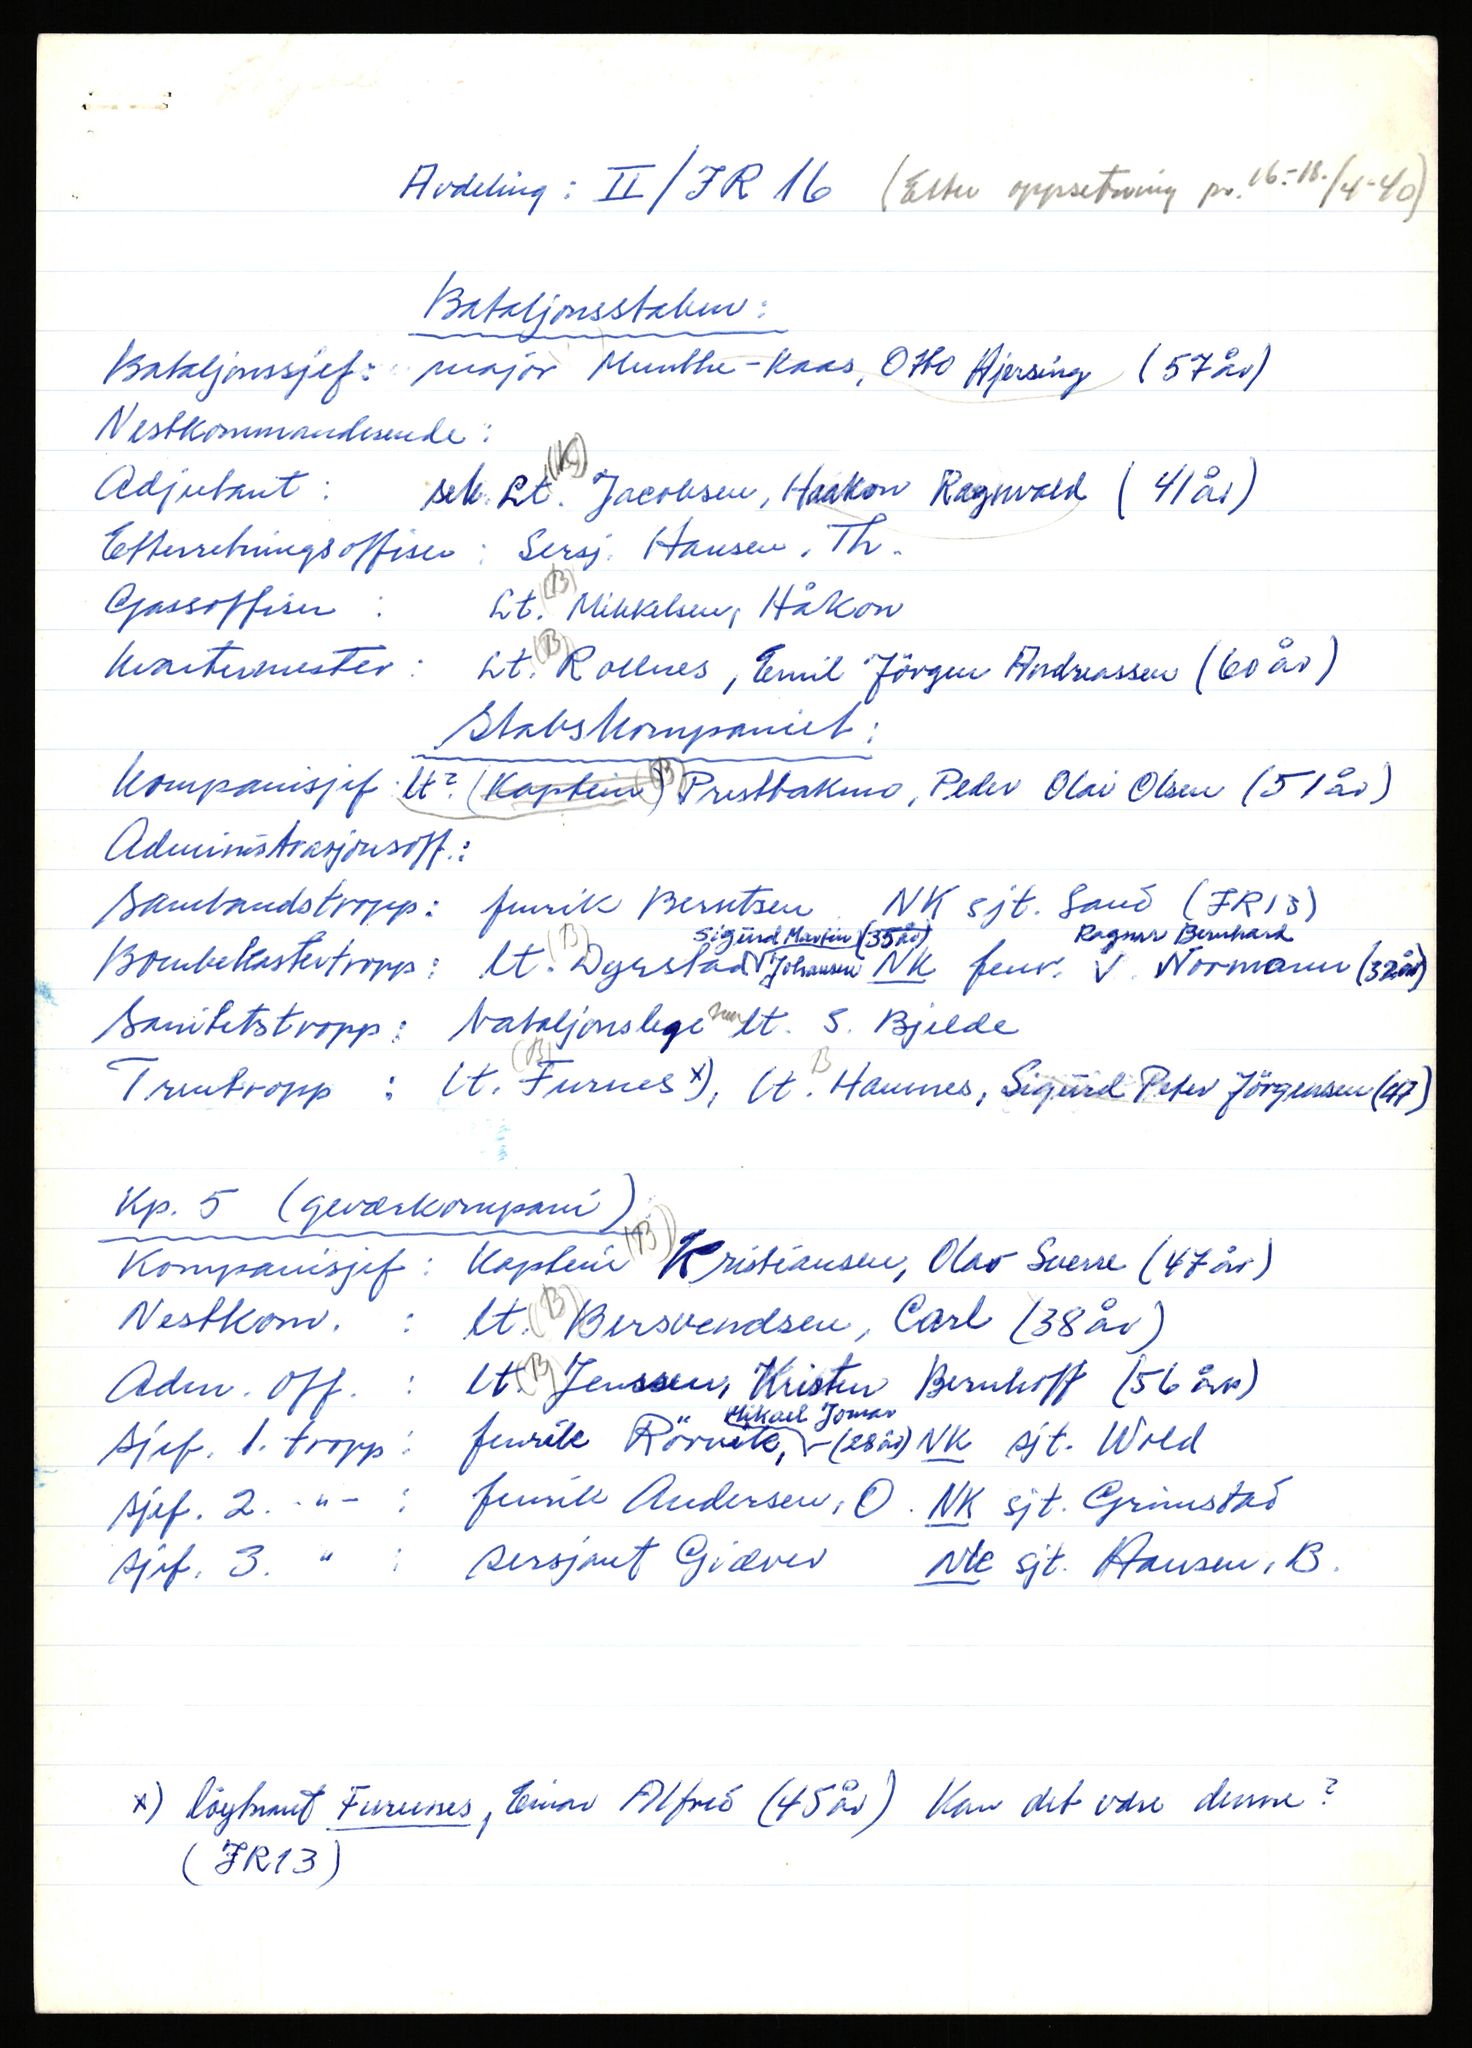 Avdeling: II/JR 16 (Etter oppsetning pr. 16.-18./4-40)
Bataljonsstaben:
Bataljonssjef: major Munthe-Kaas, Otto Hjersing (57 år)
Nestkommanderende:
Adjutant: sek. Lt. (K) Jacobsen, Haakon Ragnvald (41 år)
Etterretningsoffiser: Sersj. Hansen, Th.
Gassoffiser: Lt. (B) Mikkelsen, Håkon
Kvartermester: Lt. (B) Rollnes, Emil Jörgen Andreassen (60 år)
Stabskompaniet:
Kompanisjef: lt? (Kaptein) (B) Prestbakmo, Peder Olai Olsen (51 år)
Administrasjonsoff.:
Sambandstropp: fenrik Berntsen NK sjt. Sand (JR13)
Bombekastertropp: lt. (B) Dyrstad Sigurd Martin Johansen (35 år) NK fenr. Ragnar Bernhard Normann (32 år)
Sanitetstropp: bataljonslege san lt. S. Bjelde
Trentropp: lt. (B) Furnes x), lt. B Hamnes, Sigurd Peter Jörgensen (47)
Kp. 5 (geværkompani)
Kompanisjef: Kaptein (B) Kristiansen, Olav Sverre (47 år)
Nestkom.: lt. (B) Bersvendsen, Carl (38 år)
Adm. off.: lt. (B) Jenssen, Kristen Bernhoff (56 år)
Sjef. 1. tropp: fenrik Rörvik, Mikael Jomar (28 år) NK sjt. Wold
Sjef. 2. -"-: fenrik Andersen, O. NK sjt. Grimstad
Sjef. 3. ": sersjant Gidever NK sjt. Hansen, B.
x) löytnant Furunes, Einar Alfred (45 år) Kan det være denne?
(JR13)